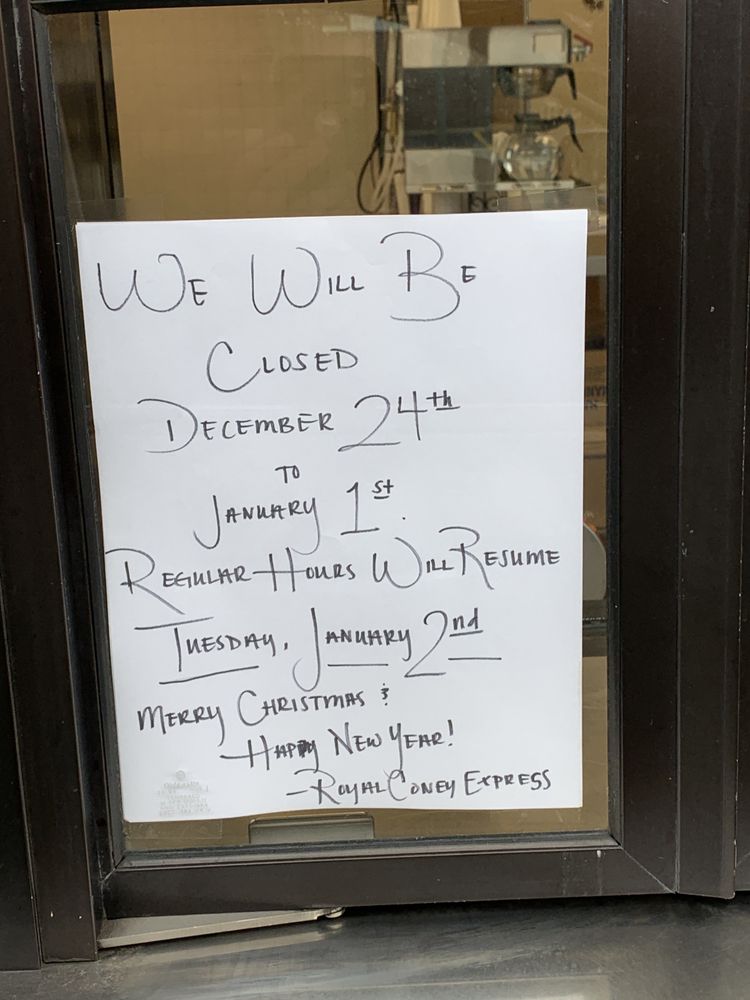 We Will Be
Closed
December 24th
to
January 1st.
Regular Hours Will Resume
Tuesday, January 2nd
Merry Christmas &
Happy New Year!
- Royal Coney Express